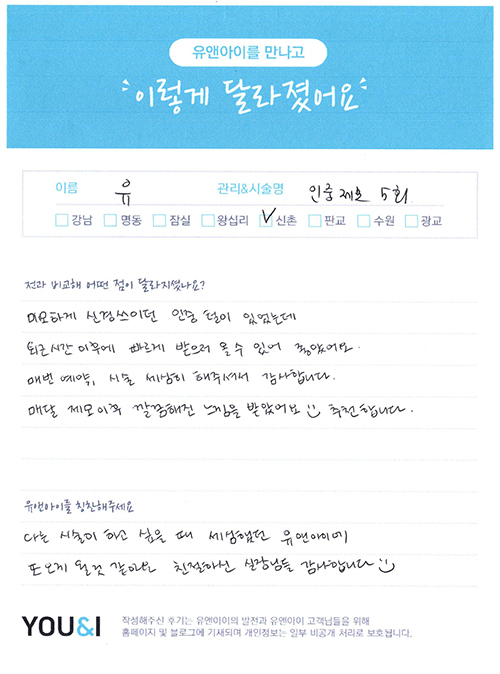 유앤아이를 만나고
이렇게 달라졌어요
이름 유 관리&시술명 인중제모 5회
강남 명동 잠실 왕십리 신촌 판교 수원 광교
전과 비교해 어떤 점이 달라지셨나요?
미묘하게 신경쓰이던 인중 털이 있었는데
퇴근시간 이후에 빠르게 받으러 올 수 있어 좋았어요.
매번 예약, 시술 세심히 해주셔서 감사합니다.
매달 제모이후 깔끔해진 느낌을 받았어요 추천합니다.
유앤아이를 칭찬해주세요
다른 시술이 하고 싶을 때 세심했던 유앤아이에
또 오게 될것 같아요 친절하신 실장님들 감사합니다
YOU&I
작성해주신 후기는 유앤아이의 발전과 유앤아이 고객님들을 위해
홈페이지 및 블로그에 기재되며 개인정보는 일부 비공개 처리로 보호됩니다.